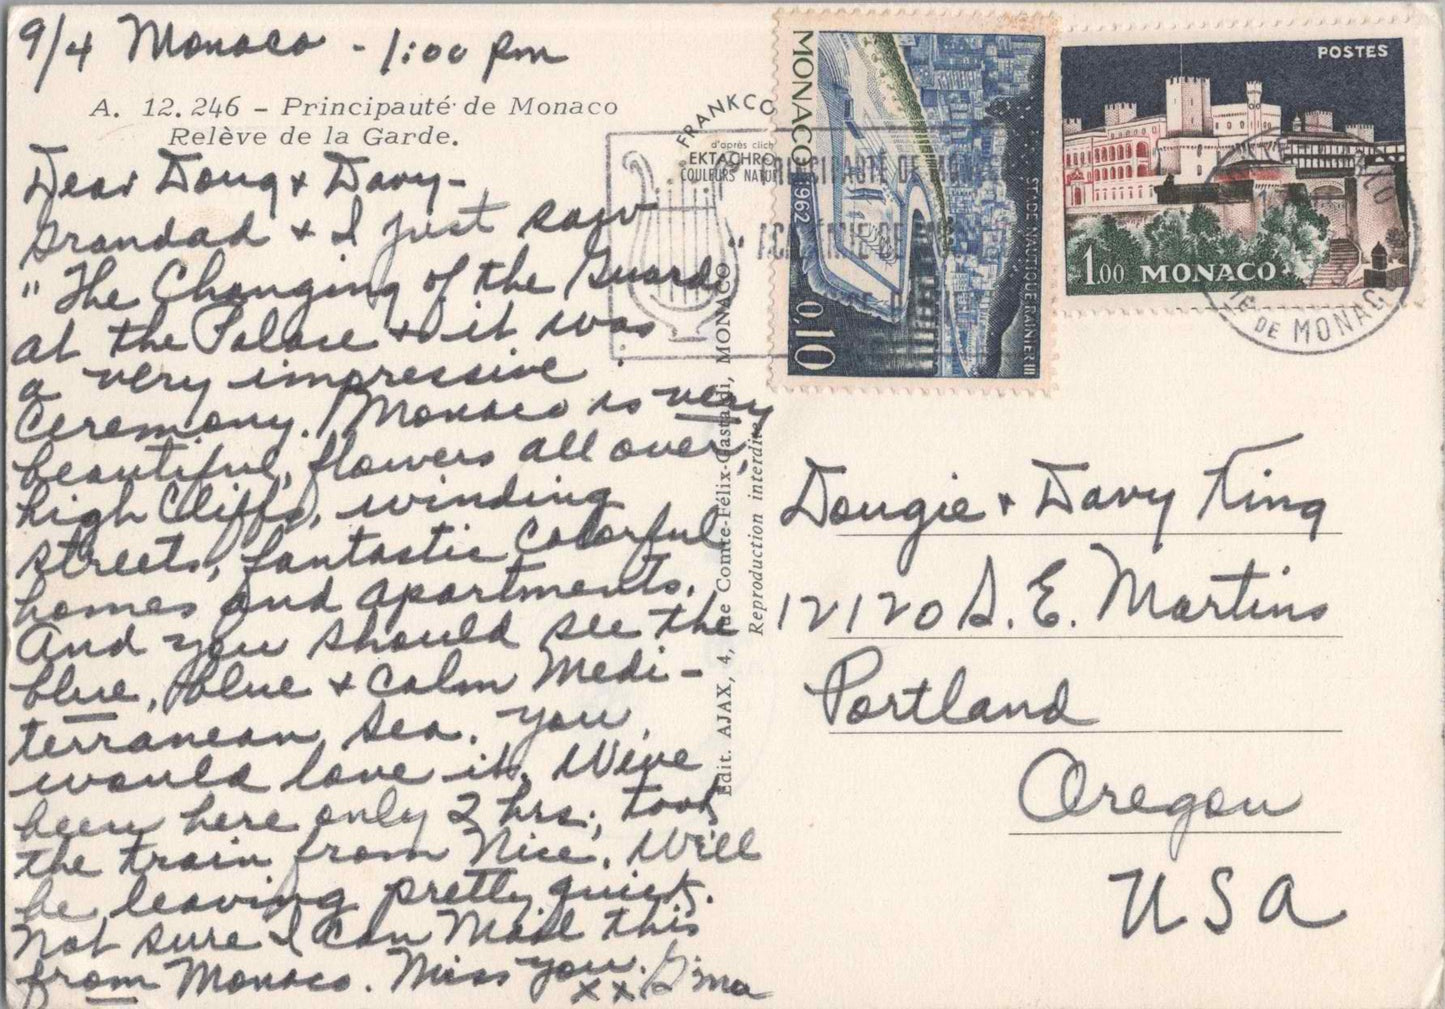 9/4 Monaco - 1:00 pm
A. 12.246 – Principauté de Monaco
Relève de la Garde.
Dear Doug & Davy-
Grandad & I just saw
"The Changing of the Guard
at the Palace & it was
a very impressive
ceremony. Monaco is very
beautiful, flowers all over,
high cliffs, winding
streets, fantastic colorful
homes and apartments.
And you should see the
blue, blue & calm Medi-
terranean Sea. You
would love it. We've
been here only 2 hrs; took
the train from Nice. Will
be leaving pretty quick.
Not sure I can mail this
from Monaco. Miss you.
xx G'ma
FRANKCO
d'après clich
EKTACHRO
COULEURS NATU
Edit. AJAX, 4, rue Comte-Félix-Gastaldi, MONACO
Reproduction interdite
PRINCIPAUTÉ DE MONACO
MONACO
1962
0,10
STADE NAUTIQUE RAINIER III
POSTES
1.00 MONACO
DE MONACO
Dougie & Davy King
12120 S.E. Martins
Portland
Oregon
USA